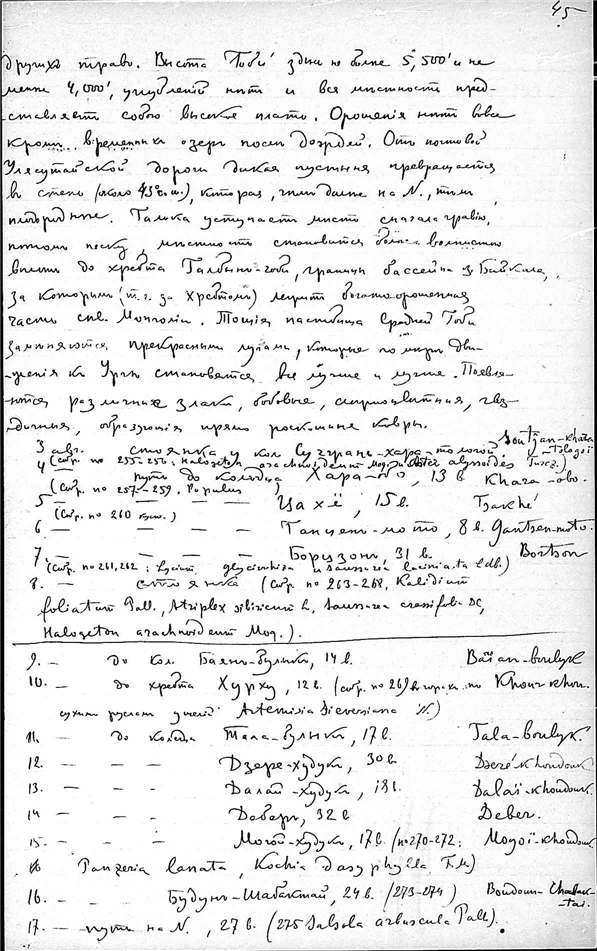 45
другихъ травъ. Высота Гоби здѣсь не болѣе 5,500' и не
менѣе 4,000', углубленій нѣтъ и вся мѣстность пред-
ставляетъ собою высокое плато. Орошенія нѣтъ вовсе
кромѣ временныхъ озеръ послѣ дождей. Отъ почтовой
Улясутайской дороги дикая пустыня превращается
въ степь (около 45° с. ш.), которая, чѣмъ далѣе на N., тѣмъ
плодороднѣе. Галька уступаетъ мѣсто сначала гравію,
потомъ песку, мѣстность становится болѣе волнистою
вплоть до хребта Галбын-гоби, границы бассейна оз. Байкала,
за которымъ (т. е. за хребтомъ) лежитъ богато орошенная
часть сѣв. Монголіи. Тощія пастбища Средней Гоби
замѣняются прекрасными лугами, которые по мѣрѣ дви-
женія къ Ургѣ становятся все лучше и лучше. Появля-
ются различные злаки, бобовые, сложноцвѣтныя, гвоз-
дичныя, образующія прямо роскошные ковры.
3 авг. стоянка у кол. Сучжань-хара-тологой. Soutjan-khara-tologoi
4 (Сбр. no 255-256: Halogeton arachnoideum Moq. Aster alyssoides Turcz.)
путь до колодца Хара-обо, 13 в. Khara-obo.
(Сбр. no 257-259. Populus )
5 — — — Цахё, 15 в. Tsakhé
(Сбр. no 260 )
6 — — — — Ганцен-мото, 8 в. Gantsen-moto.
7. — — — — Борцзон, 31 в. Bortson
(Сбр. no 261, 262: Lycium, glycirrhiza и saussurea laciniata Ldb.)
8. — стоянка (Сбр. no 263-268, Kalidium
foliatum Pall., Atriplex sibiricum L, Saussurea crassifolia DC,
Halogeton arachnoideum Moq.).
9. — до кол. Баянъ-булыкъ, 14 в. Baïan-boulyk
10. — до хребта Хурху, 12 в. (сбр. no 269 въ горахъ по Khour-khou.
сухимъ русламъ ущелій Artemisia Sieversiana W.)
11. — до колодца Тала-булыкъ, 17 в. Tala-boulyk.
12. — — — Дзере-худукъ, 30 в. Dzeré-khoudouk
13. — — — Далай-худукъ, 18 в. Dalaï-khoudouk.
14 — — — Деберъ, 32 в. Deber.
15. — Могой-худукъ, 17 в. (no 270-272: Mogoï-khoudouk
Panzeria lanata, Kochia dasyphylla F.M.)
16. — Будунъ-Шабактай, 24 в. (273-274) Boudoun-Chabak-
taï.
17. — путь на N., 27 в. (275 Salsola arbuscula Pall.).